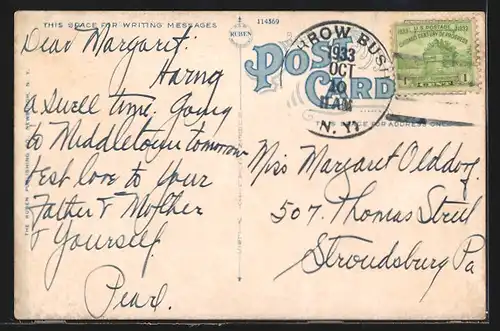 THIS SPACE FOR WRITING MESSAGES
RUBEN
114369
POST
CARD
ROW BUSH
1933
OCT
10
N. Y.
U.S. POSTAGE
1833 1933
CENTURY OF PROGRESS
1 CENT
SPACE FOR ADDRESS ONLY
THE RUBEN PUBLISHING CO., NEWBURGH, N. Y.
Dear Margaret:
Having
a swell time. Going
to Middletown tomorrow
best love to your
Father & Mother
& Yourself.
Pearl.
Miss Margaret Olddorf.
507. Thomas Street
Stroudsburg Pa